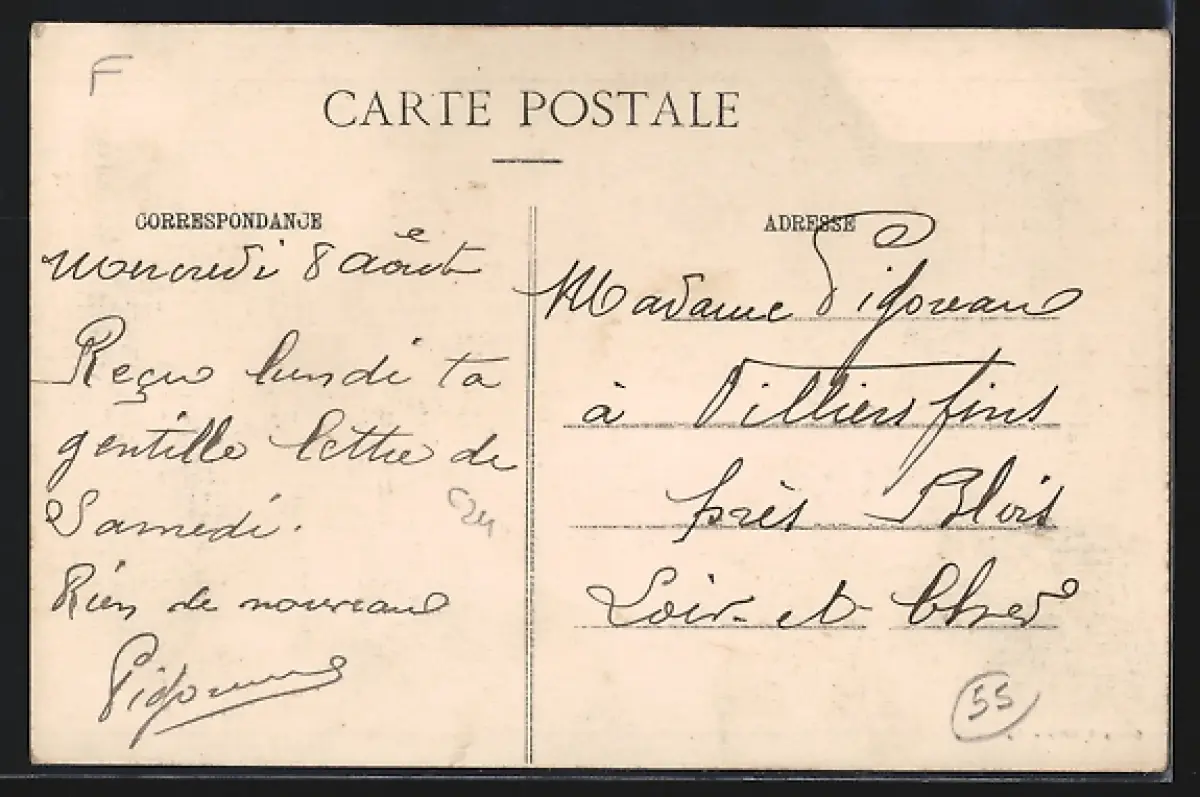 F
CARTE POSTALE
CORRESPONDANCE
Mercredi 8 août
Reçu lundi ta
gentille lettre de
Samedi.
Rien de nouveau
Pigoreau
ADRESSE
Madame Pigoreau
à Villiersfins
près Blois
Loir-et-Cher
55